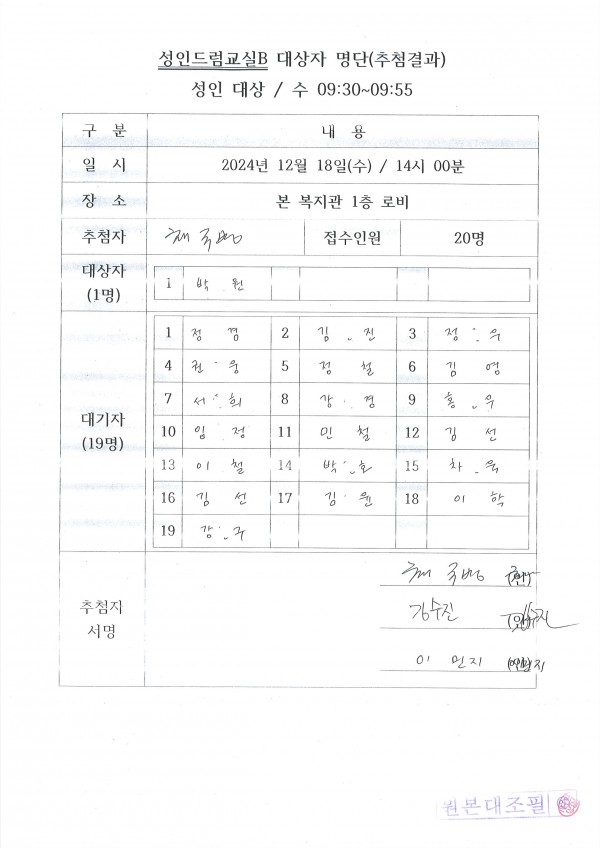 성인드럼교실B 대상자 명단(추첨결과)
성인 대상 / 수 09:30~09:55
구 분 내 용
일 시 2024년 12월 18일(수) / 14시 00분
장 소 본 복지관 1층 로비
추첨자 접수인원 20명
대상자
(1명)
1 박 원
대기자
(19명)
1 정 겸 2 김 진 3 정 우
4 권 웅 5 정 철 6 김 영
7 서 희 8 강 경 9 홍 우
10 임 정 11 민 철 12 김 선
13 이 철 14 박 호 15 차 욱
16 김 선 17 김 윤 18 이 학
19 강 구
추첨지
서명
김수진
이 민지
원본대조필